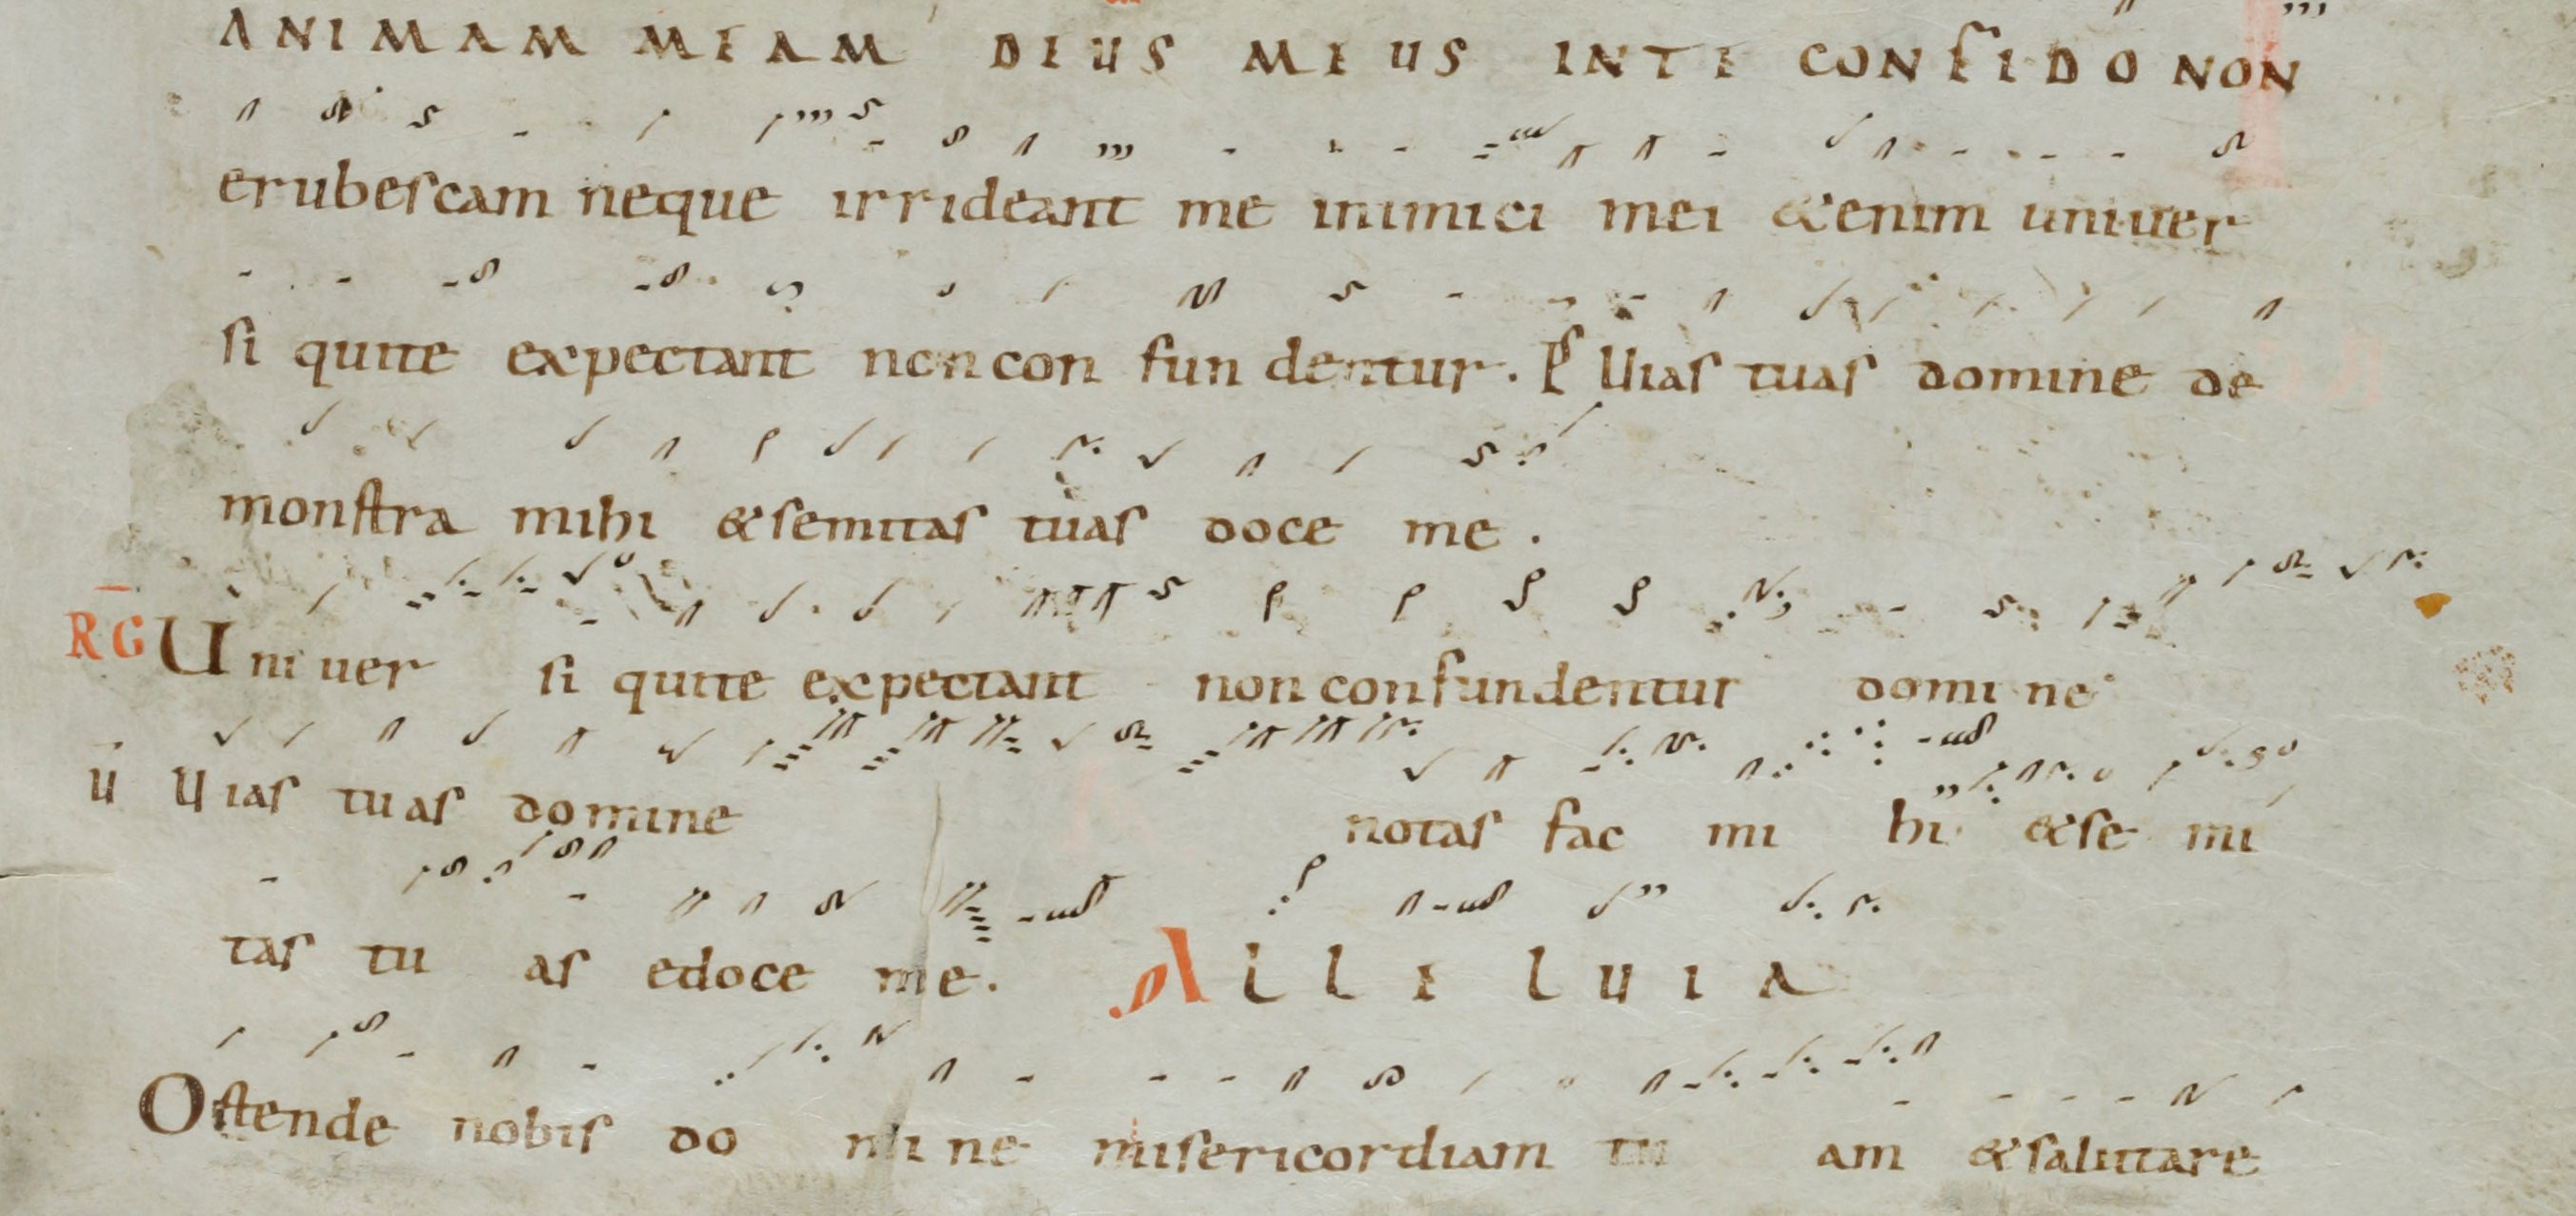 ANIMAM MEAM DEUS MEUS INTE CONFIDO NON
erubescam neque irrideant me inimici mei &enim uniuer
si quite expectant noncon fun dentur. Ps Uias tuas domine de
monstra mihi &semitas tuas doce me.
RG Uni uer si quite expectant non confundentur domi ne
ū Uias tuas domine notas fac mi hi &se mi
tas tu as edoce me. ALLELUIA
Ostende nobis do mi ne misericordiam tu am &salutare